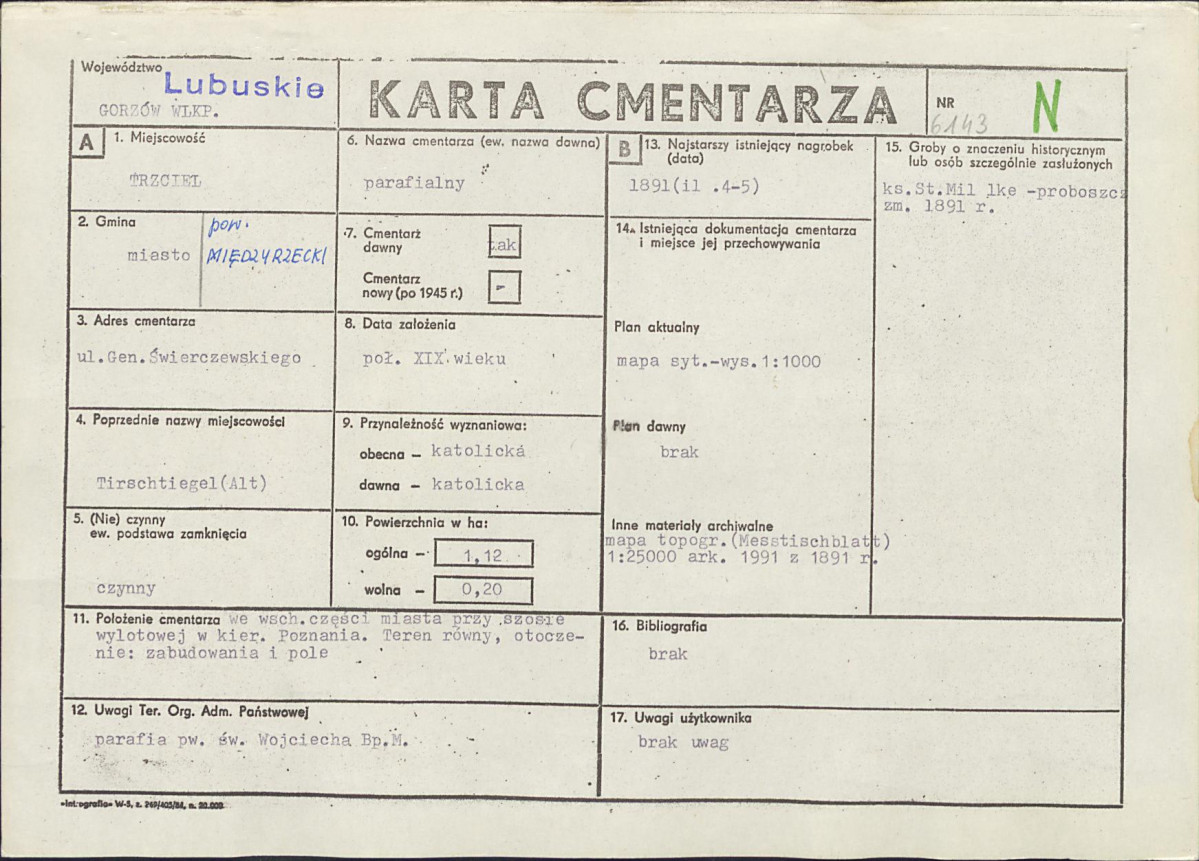 Województwo
Lubuskie
GORZÓW WLKP.
KARTA CMENTARZA
NR
6143
N
A
1. Miejscowość
TRZCIEL
2. Gmina
miasto
pow.
MIĘDZYRZECKI
3. Adres cmentarza
ul.Gen.Świerczewskiego
4. Poprzednie nazwy miejscowości
Tirschtiegel(Alt)
5. (Nie) czynny
ew. podstawa zamknięcia
czynny
6. Nazwa cmentarza (ew. nazwa dawna)
parafialny
7. Cmentarz
dawny
tak
Cmentarz
nowy (po 1945 r.)
-
8. Data założenia
poł. XIX wieku
9. Przynależność wyznaniowa:
obecna – katolicka
dawna – katolicka
10. Powierzchnia w ha:
ogólna – 1,12
wolna – 0,20
11. Położenie cmentarza we wsch.części miasta przy szosie
wylotowej w kier. Poznania. Teren równy, otocze-
nie: zabudowania i pole
12. Uwagi Ter. Org. Adm. Państwowej
parafia pw. św. Wojciecha Bp.M.
B
13. Najstarszy istniejący nagrobek
(data)
1891(il .4-5)
14. Istniejąca dokumentacja cmentarza
i miejsce jej przechowywania
Plan aktualny
mapa syt.-wys.1:1000
Plan dawny
brak
Inne materiały archiwalne
mapa topogr.(Messtischblatt)
1:25000 ark. 1991 z 1891 r.
15. Groby o znaczeniu historycznym
lub osób szczególnie zasłużonych
ks.St.Mil lke -proboszcz
zm. 1891 r.
16. Bibliografia
brak
17. Uwagi użytkownika
brak uwag
«Int.ografia» W-5, z. 269/405/84, n. 20.000